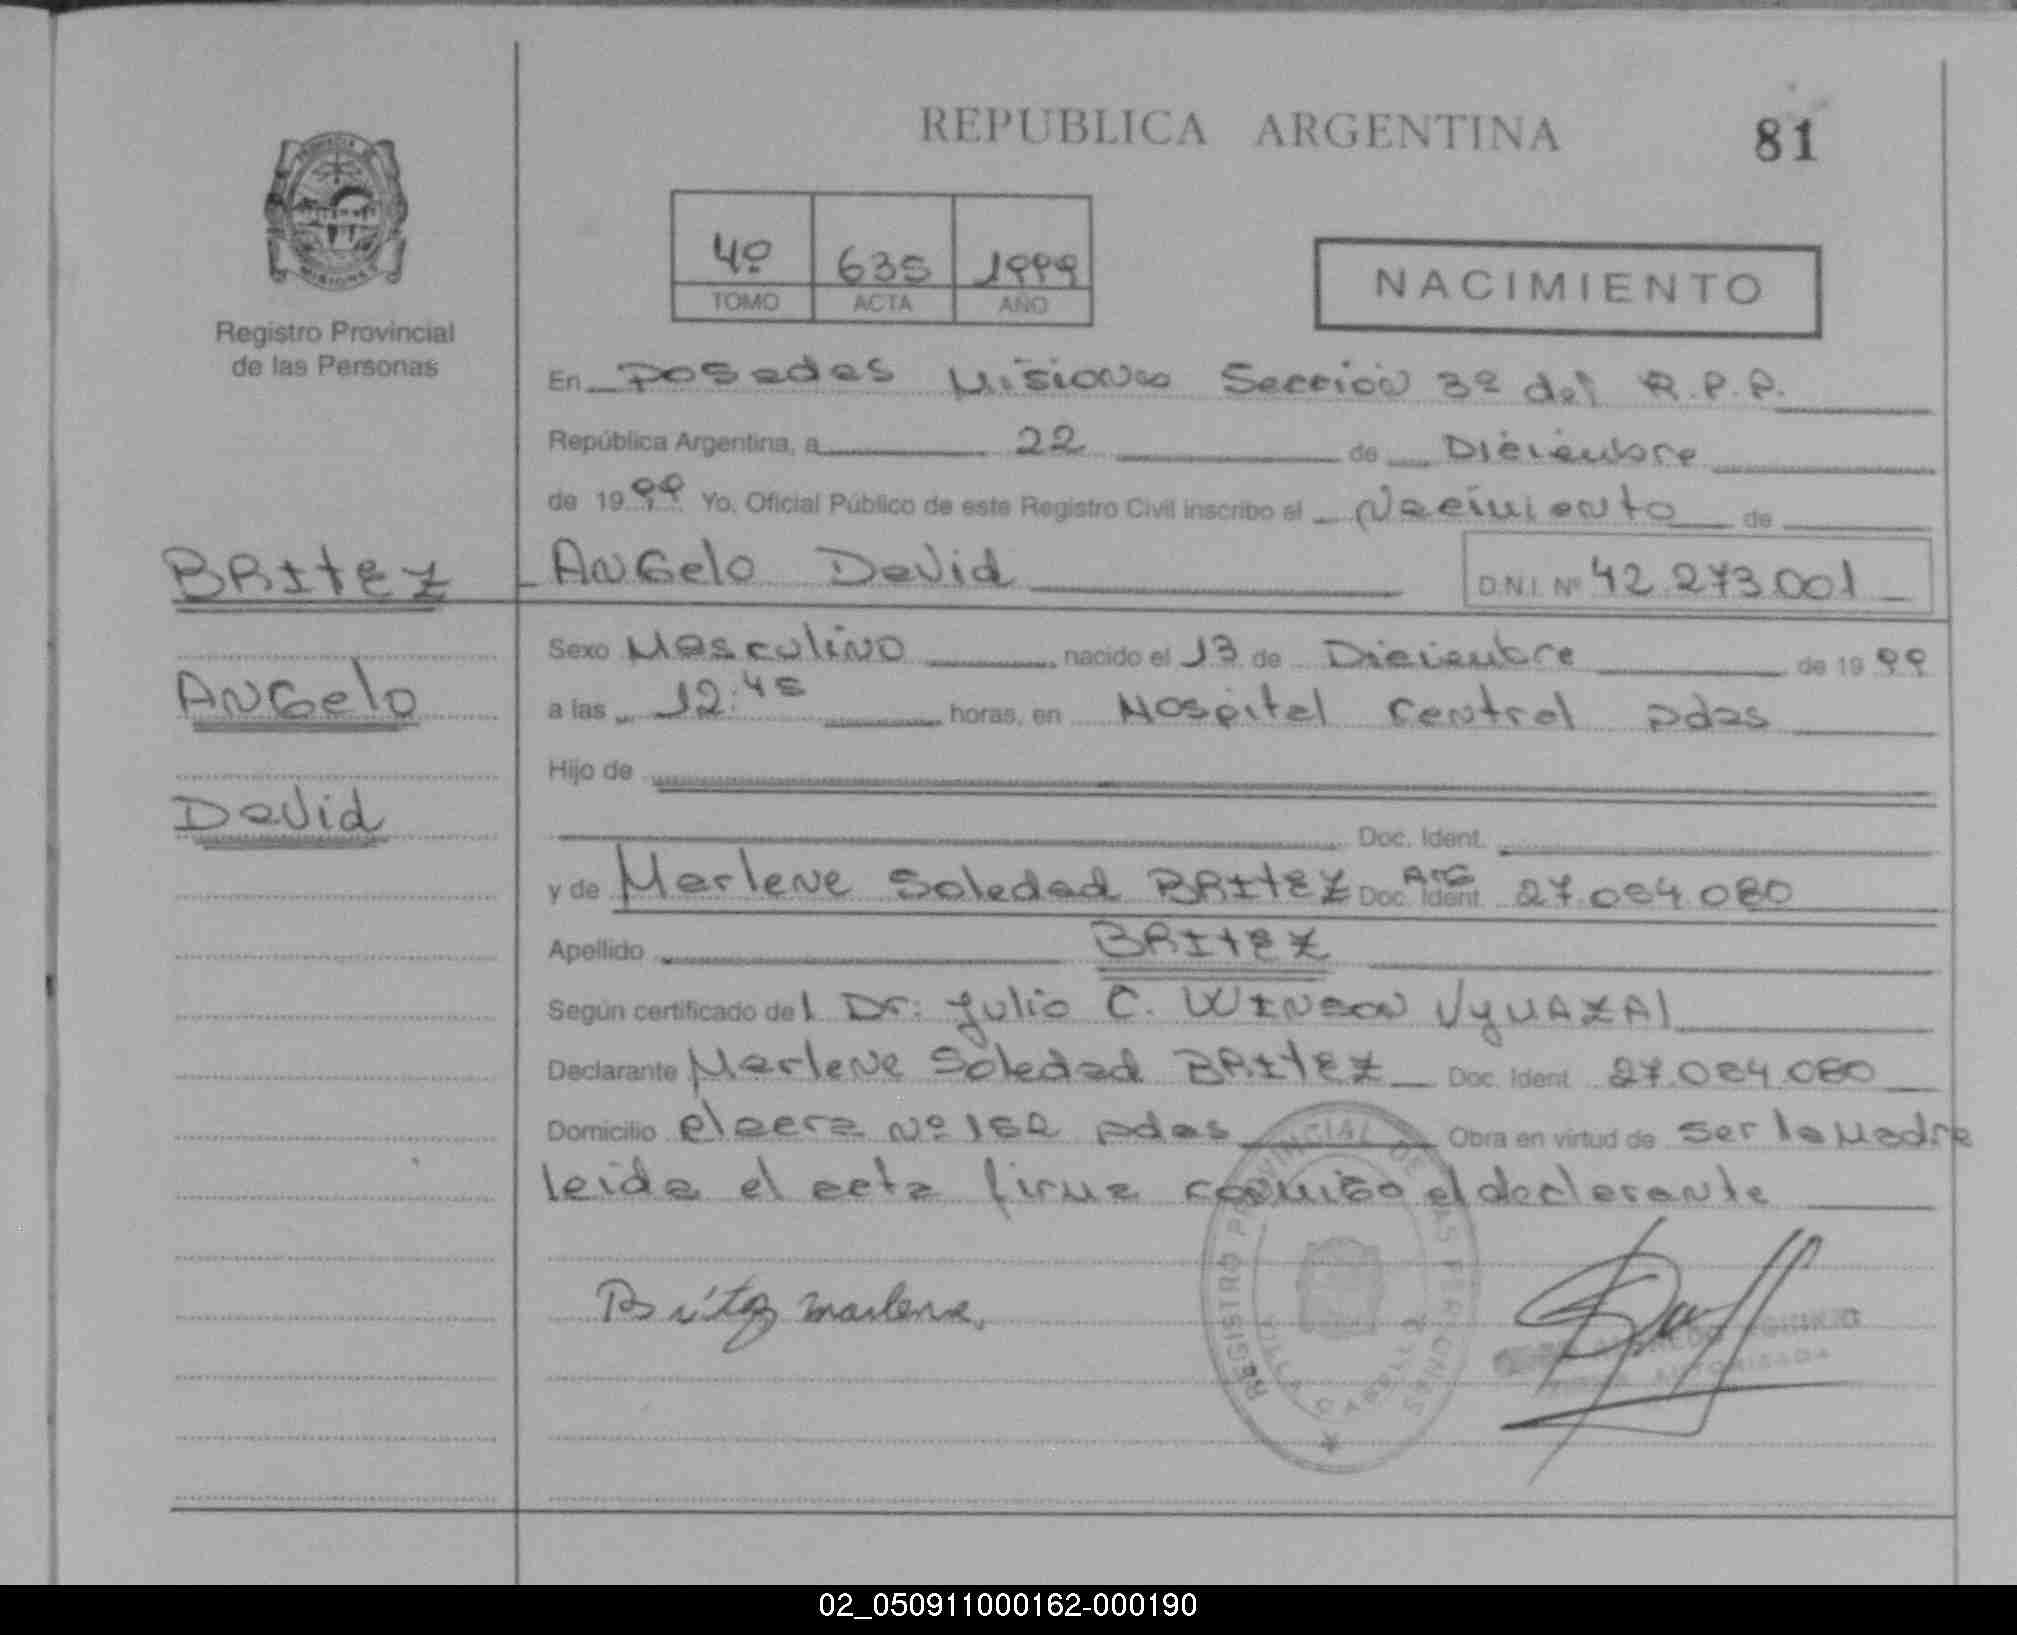 REPUBLICA ARGENTINA
81
4º 635 1999
TOMO ACTA AÑO
NACIMIENTO
Registro Provincial
de las Personas
En Posadas Misiones Sección 3ª del R.P.P.
República Argentina, a 22 de Diciembre
de 1999 Yo, Oficial Público de este Registro Civil inscribo el Nacimiento de
BRITEZ
Angelo David
D.N.I. Nº 42.273.001
Sexo Masculino nacido el 13 de Diciembre de 1999
Angelo
a las 12:45 horas, en Hospital Central pdas
Hijo de
David
Doc. Ident.
y de Marlene Soledad BRITEZ Doc. Ident. Arg 27.084.080
Apellido BRITEZ
Según certificado del Dr: Julio C.
Declarante Marlene Soledad BRITEZ Doc. Ident. 27.084.080
Domicilio Nº 162 pdas Obra en virtud de ser la Madre
leida el acta firma conmigo el declarante
Britez Marlene.
REGISTRO PROVINCIAL DE LAS PERSONAS
VILLA CABELLO
02_050911000162-000190